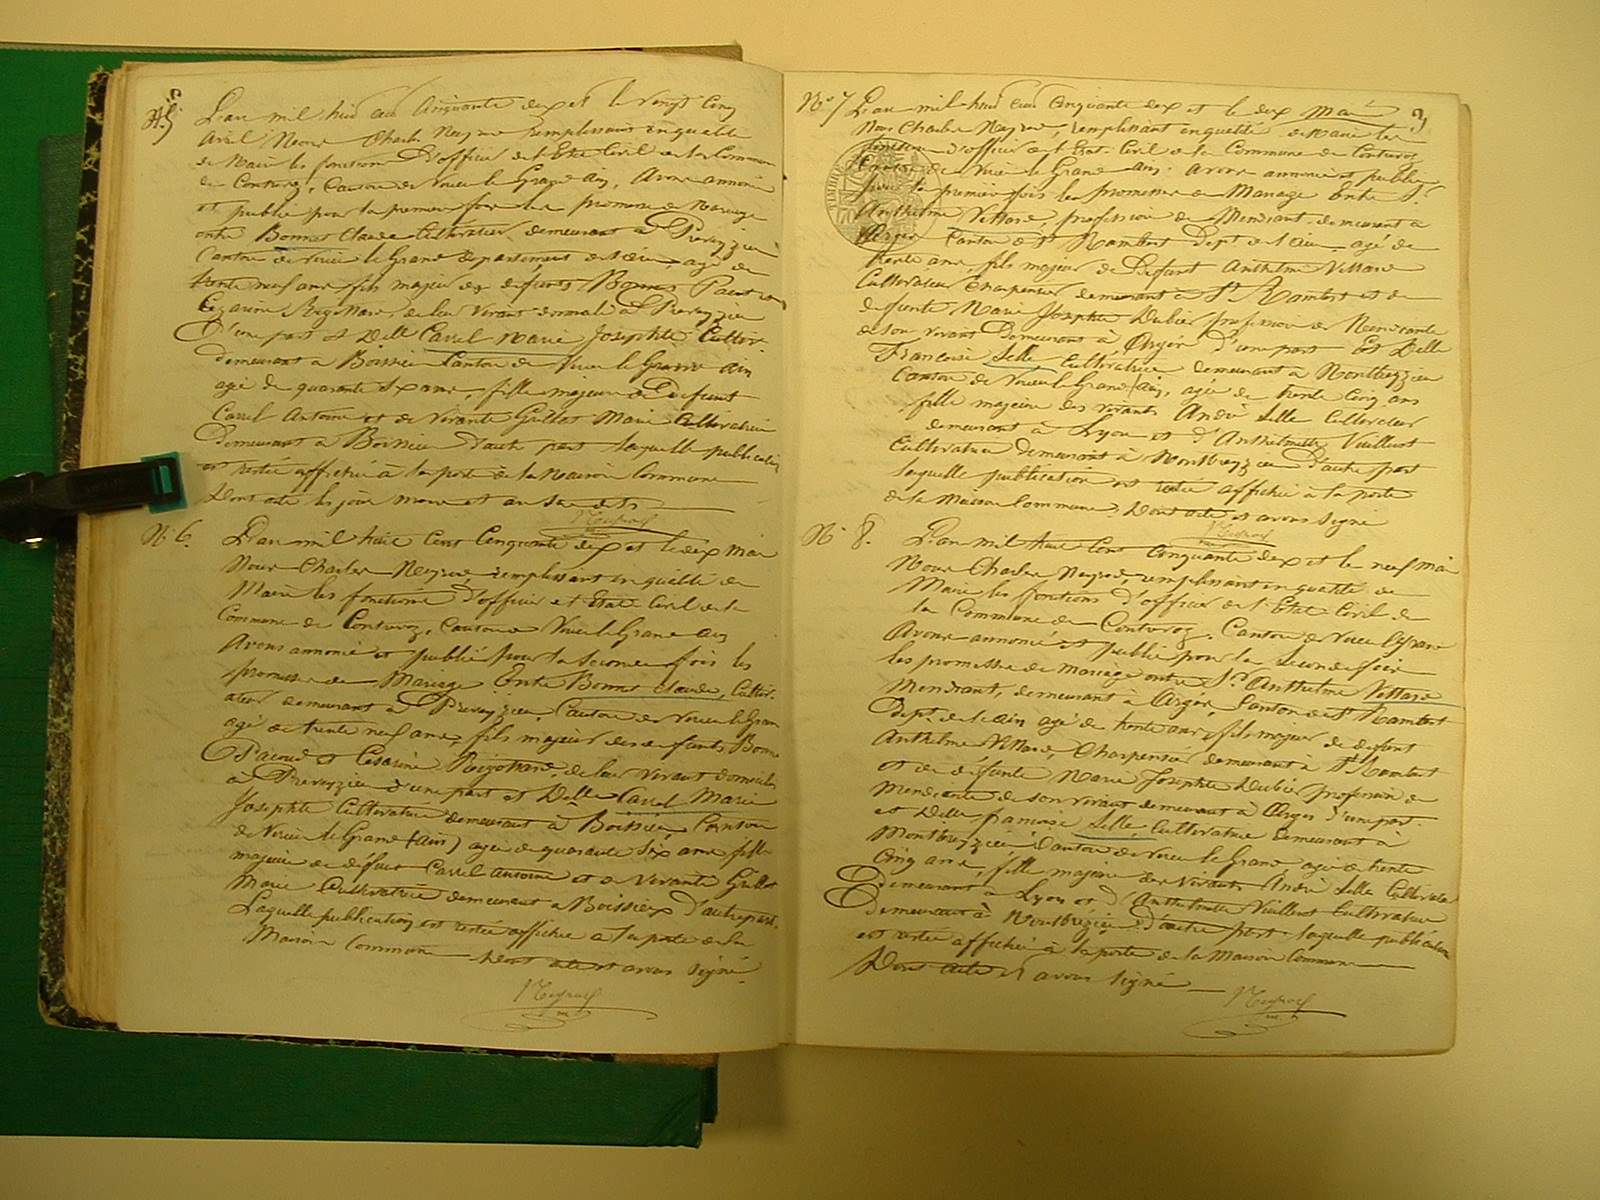 N° 5
L'an mil huit cent Cinquante deux et le Vingt Cinq
Avril Nous Charles Neyrod remplissant en qualité
de Maire les fonctions d'officier de l'Etat Civil de la Commune
de Contrevoz, Canton de Virieu le Grand Ain, Avons annoncé
et publié pour la premiere fois les promesse de Mariage
entre Bonnet Claude Cultivateur demeurant à
Canton de Virieu le Grand département de l'ain, agé de
trente neuf ans fils majeur de defunts Bonnet
Cézarine de leur vivant domiciliés à
D'une part et Delle Carrel Marie Josephte Cultiv.
demeurant à Boissieu Canton de Virieu le Grand Ain
agée de quarante six ans, fille majeure de Defunt
Carrel Antoine et de Vivante Guillot Marie Cultivatrice
Demeurant à Boissieu d'autre part laquelle publication
est restée affichée à la porte de la Maison Commune
Dont acte les jour mois et an sus dits
Neyrod
N° 6.
L'an mil huit Cent Cinquante deux et le deux Mai
Nous Charles Neyrod, remplissant en qualité de
Maire les fonctions d'officier de l'Etat Civil de la
Commune de Contrevoz, Canton de Virieu le Grand Ain
Avons annoncé et publié pour la seconde fois les
promesse de Mariage Entre Bonnet Claude, Cultiv-
ateur demeurant à Canton de Virieu le Grand
agé de trente neuf ans, fils majeur des defunts Bonnet
et Césarine de leur vivant domiciliés
à d'une part et Delle Carrel Marie
Josephte Cultivatrice demeurant à Boissieu Canton
de Virieu le Grand (Ain) agée de quarante six ans fille
majeure de défunt Carrel Antoine et de Vivante Guillot
Marie Cultivatrice demeurant à Boissieu D'autre part.
Laquelle publication est restée affichée à la porte de la
Maison Commune Dont acte et avons signé.
Neyrod
3
N° 7
L'an mil huit cent Cinquante deux et le deux Mai
Nous Charles Neyrod, remplissant en qualité de Maire les
fonctions d'officier de l'Etat Civil de la Commune de Contrevoz
Canton de Virieu le Grand Ain. Avons annoncé et publié
pour la premiere fois les promesse de Mariage Entre Sr.
Anthelme Vettard, profession de Mendiant demeurant à
Argis Canton de St Rambert Dept de l'Ain agé de
trente ans, fils majeur de Défunt Anthelme Vettard
Cultivateur Charpentier demeurant à St Rambert et de
defunte Marie Josephte Dubier profession de Mendiante
de son vivant demeurant à Argis D'une part Et Delle
Francoise Lelle Cultivatrice demeurant à Montbreyzieu
Canton de Virieu le Grand (Ain, agée de trente Cinq ans
fille majeure des vivants André Lelle Cultivateur
demeurant à Lyon et d'Anthelmette Vuillerot
Cultivatrice demeurant à Montbreyzieu D'autre part
laquelle publication est restée affichée à la porte
de la Maison Commune. Dont acte et avons signé
Neyrod
N° 8.
L'an mil huit Cent Cinquante deux et le neuf Mai
Nous Charles Neyrod, remplissant en qualité de
Maire les fonctions d'officier de l'Etat Civil de
la Commune de Contrevoz, Canton de Virieu le Grand
Avons annoncé et publié pour la seconde fois
les promesse de mariage entre Sr. Anthelme Vettard
Mendiant, demeurant à Argis, Canton de St. Rambert
Dept. de l'Ain agé de trente ans, fils majeur de defunt
Anthelme Vettard, Charpentier demeurant à St Rambert
et de défunte Marie Josephte Dubier profession de
Mendiante de son vivant demeurant à Argis D'une part.
et Delle francoise Lelle, Cultivatrice demeurant à
Montbreyzieu, Canton de Virieu le Grand agée de trente
Cinq ans, fille majeure des Vivants André Lelle Cultivateur
Demeurant à Lyon et d'Anthelmette Vuillerot Cultivatrice
demeurant à Montbreyzieu D'autre part. laquelle publication
est restée affichée à la porte de la Maison Commune
Dont acte et avons signé
Neyrod